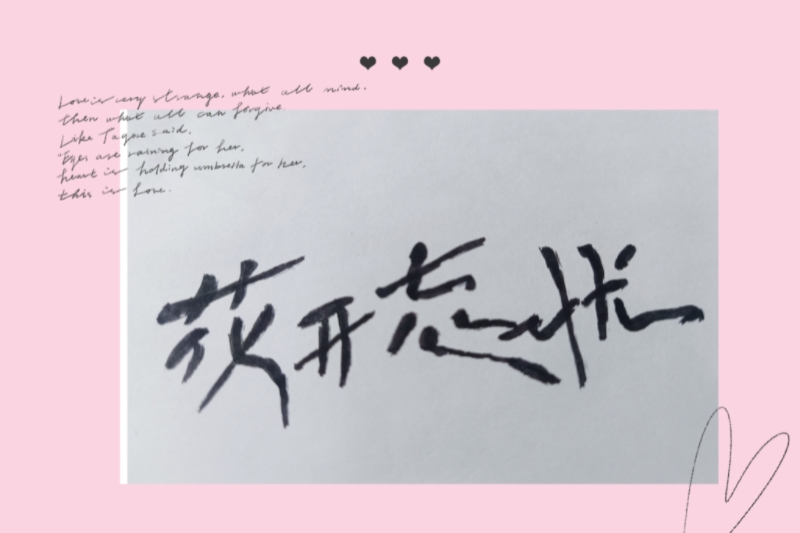 Love is very strange. what all mind.
then what all can forgive
Like Tagore said,
"Eyes are raining for her,
heart is holding umbrella for her,
this is love.
花开忘忧